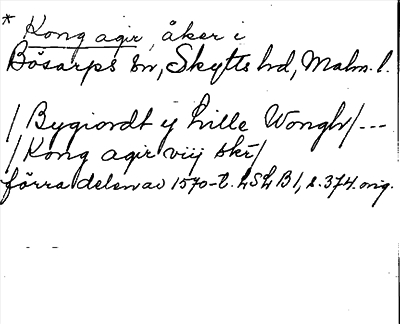 * Kong agir, åker i
Bösarps sn, Skytts hd, Malm. l.
/ Bygiordt ij Lille Wongh/ ---
/ Kong agir viij skr/
förra delen av 1570-t. LSLB1, s. 374. orig.